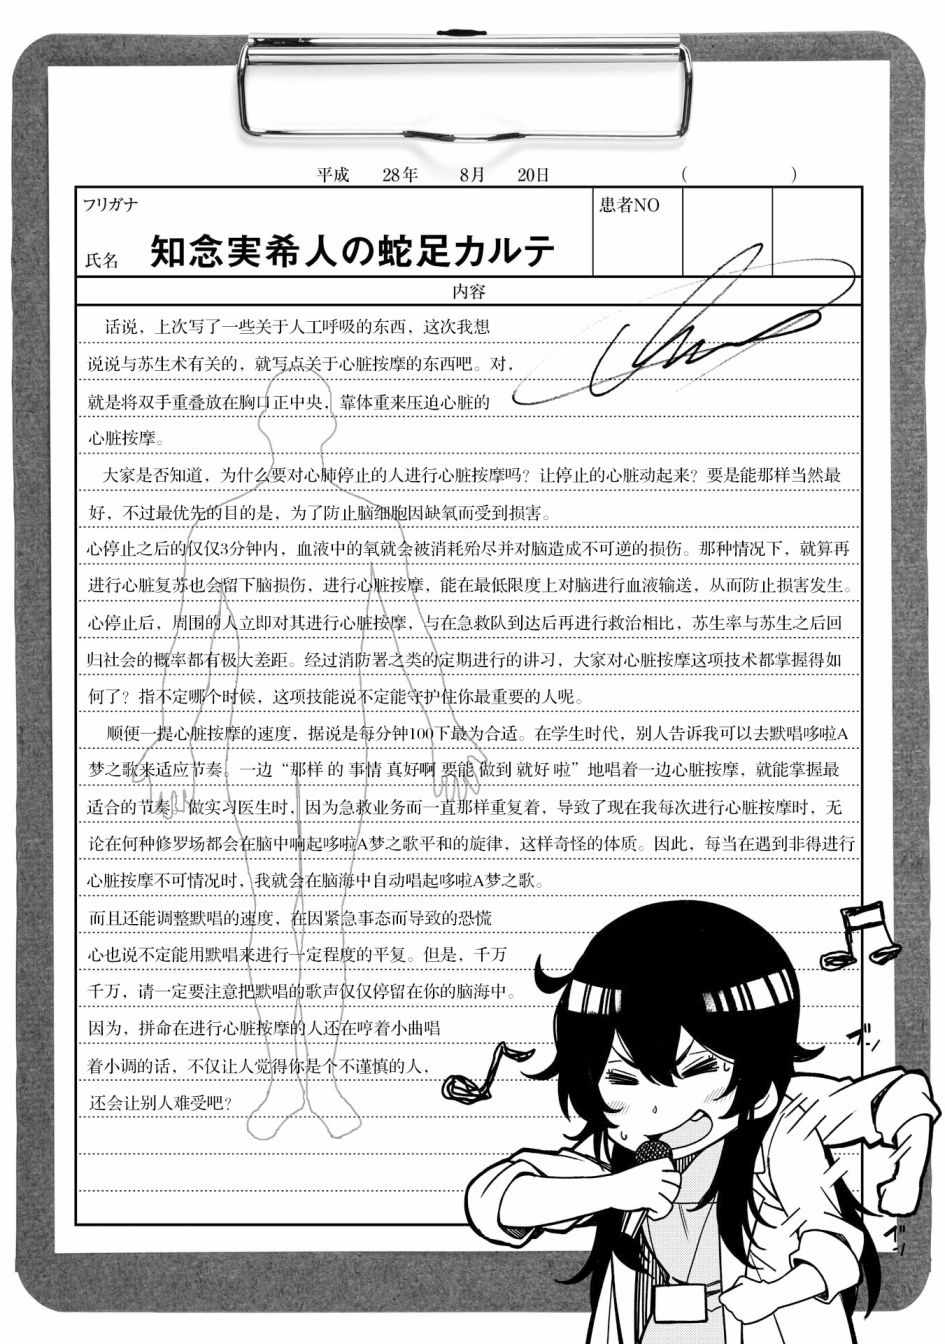 平成 28年 8月 20日 ( )
フリガナ
患者NO
氏名 知念実希人の蛇足カルテ
内容
话说，上次写了一些关于人工呼吸的东西，这次我想
说说与苏生术有关的，就写点关于心脏按摩的东西吧。对，
就是将双手重叠放在胸口正中央，靠体重来压迫心脏的
心脏按摩。
大家是否知道，为什么要对心肺停止的人进行心脏按摩吗？让停止的心脏动起来？要是能那样当然最
好，不过最优先的目的是，为了防止脑细胞因缺氧而受到损害。
心停止之后的仅仅3分钟内，血液中的氧就会被消耗殆尽并对脑造成不可逆的损伤。那种情况下，就算再
进行心脏复苏也会留下脑损伤，进行心脏按摩，能在最低限度上对脑进行血液输送，从而防止损害发生。
心停止后，周围的人立即对其进行心脏按摩，与在急救队到达后再进行救治相比，苏生率与苏生之后回
归社会的概率都有极大差距。经过消防署之类的定期进行的讲习，大家对心脏按摩这项技术都掌握得如
何了？指不定哪个时候，这项技能说不定能守护住你最重要的人呢。
顺便一提心脏按摩的速度，据说是每分钟100下最为合适。在学生时代，别人告诉我可以去默唱哆啦A
梦之歌来适应节奏。一边“那样 的 事情 真好啊 要能 做到 就好 啦”地唱着一边心脏按摩，就能掌握最
适合的节奏。做实习医生时，因为急救业务而一直那样重复着，导致了现在我每次进行心脏按摩时，无
论在何种修罗场都会在脑中响起哆啦A梦之歌平和的旋律，这样奇怪的体质。因此，每当在遇到非得进行
心脏按摩不可情况时，我就会在脑海中自动唱起哆啦A梦之歌。
而且还能调整默唱的速度，在因紧急事态而导致的恐慌
心也说不定能用默唱来进行一定程度的平复。但是，千万
千万，请一定要注意把默唱的歌声仅仅停留在你的脑海中。
因为，拼命在进行心脏按摩的人还在哼着小曲唱
着小调的话，不仅让人觉得你是个不谨慎的人，
还会让别人难受吧？
ブン
ブン